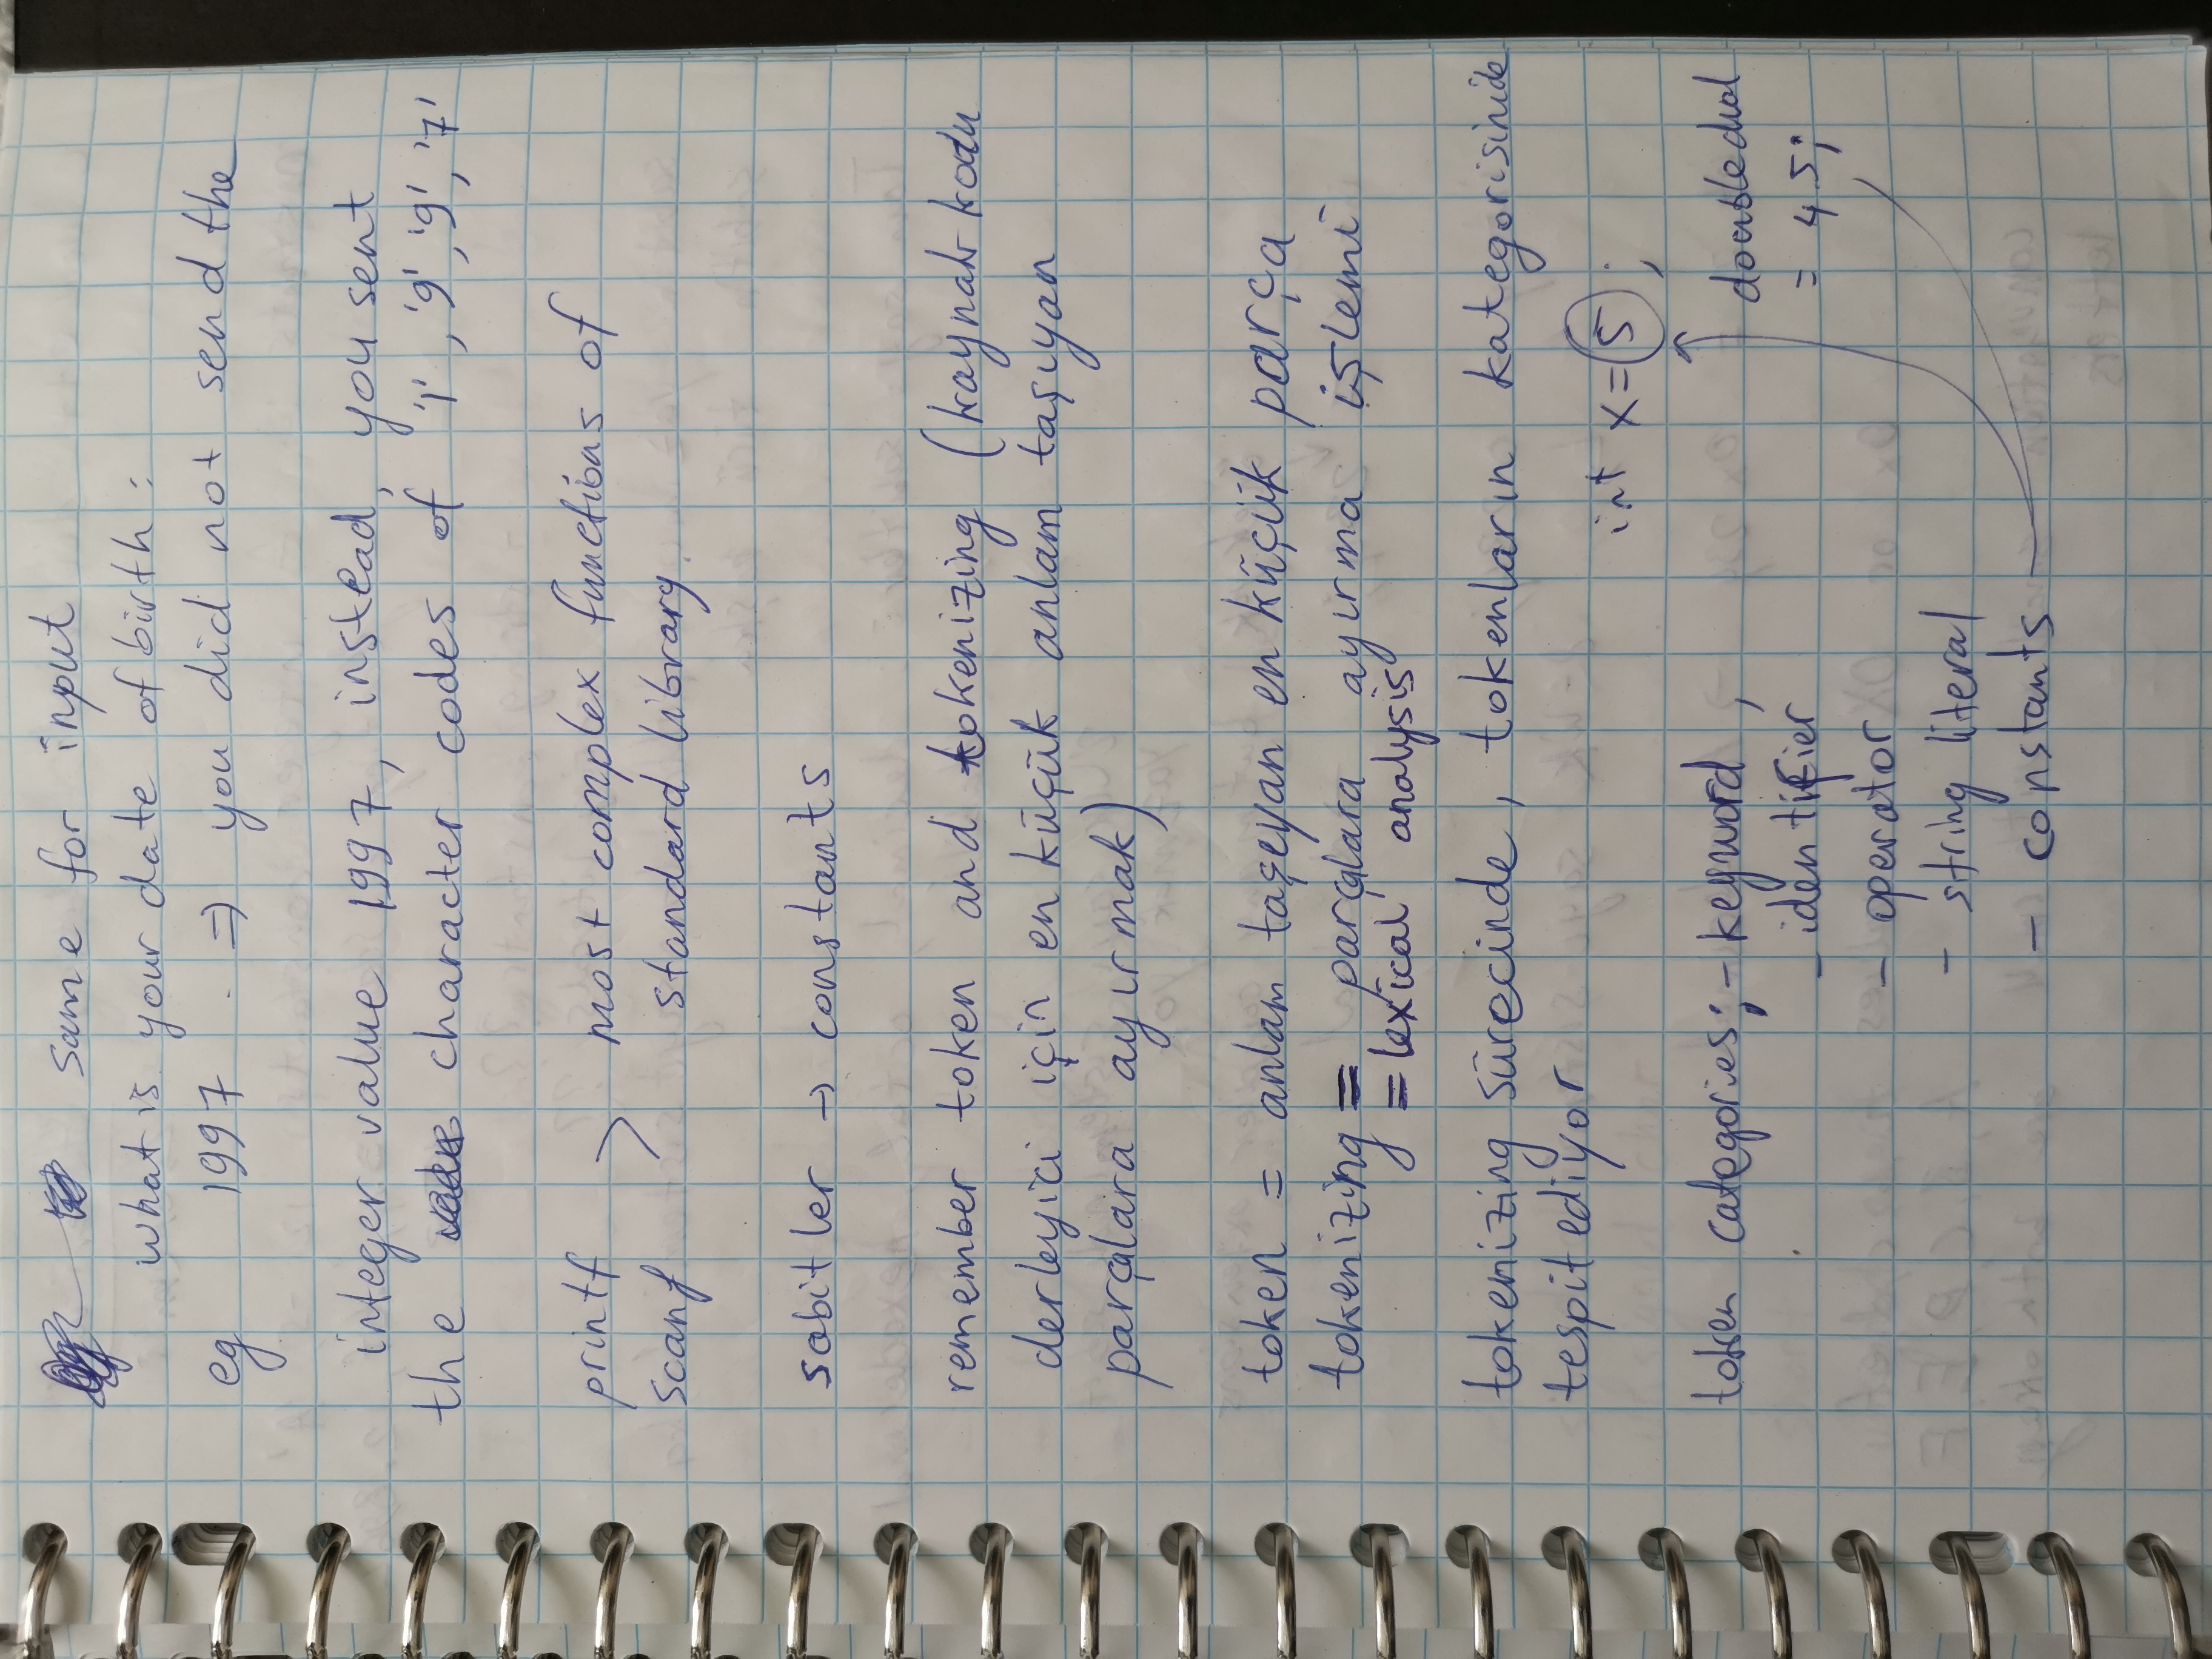 same for input
what is your date of birth :
eg 1997 => you did not send the
integer value 1997, instead, you sent
the character codes of '1', '9', '9', '7'
printf > most complex functions of
scanf standard library.
sabitler → constants
remember token and tokenizing (kaynak kodu
derleyici için en küçük anlam taşıyan
parçalara ayırmak)
token = anlam taşıyan en küçük parça
tokenizing = parçalara ayırma işlemi
= lexical analysis
tokenizing sürecinde, tokenların kategorisinide
tespit ediyor
int x = 5;
token categories; - keyword,
double dval
- identifier
= 4.5;
- operator
- string literal
- constants